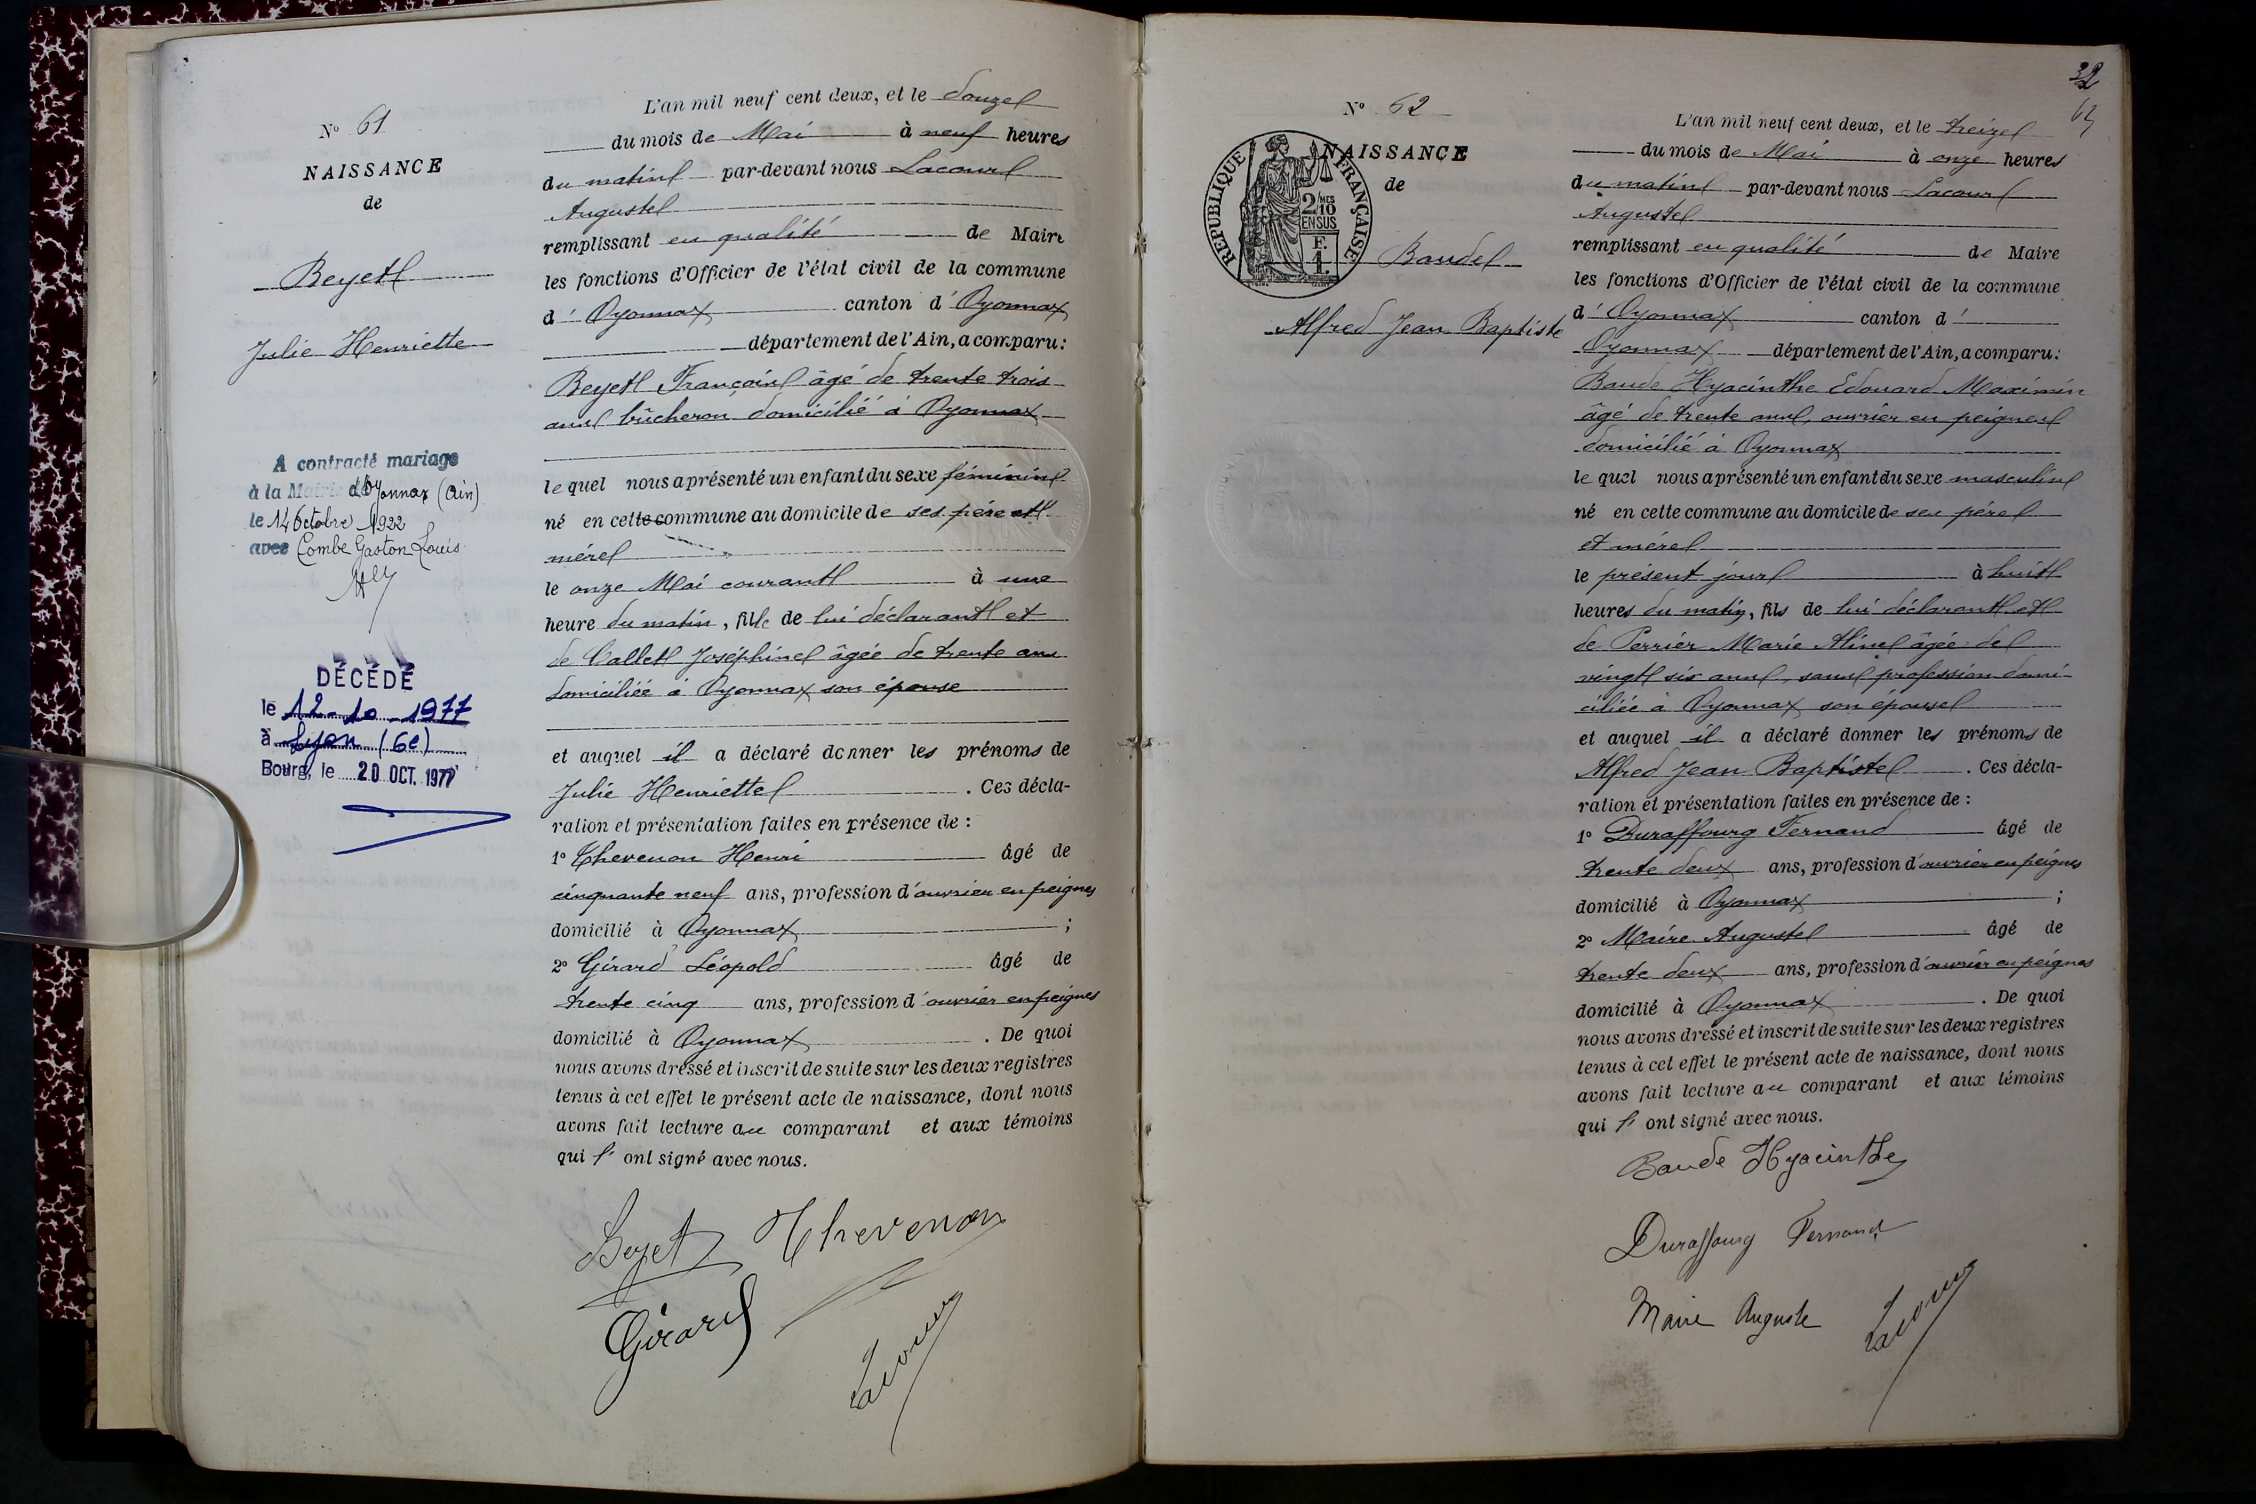 N° 61
NAISSANCE
de
Beyet
Julie Henriette
A contracté mariage
à la Mairie d'Oyonnax (Ain)
le 14 Octobre 1922
avec Combe Gaston Louis
DÉCÉDÉ
le 12-10-1977
à Lyon (6e)
Bourg, le 20 OCT. 1977
L'an mil neuf cent deux, et le douze
du mois de Mai à neuf heures
du matin par-devant nous Lacour
Auguste
remplissant en qualité de Maire
les fonctions d'Officier de l'état civil de la commune
d' Oyonnax canton d' Oyonnax
département de l'Ain, a comparu :
Beyet François âgé de trente trois
ans bûcheron domicilié à Oyonnax
le quel nous a présenté un enfant du sexe féminin
né en cette commune au domicile de ses père et
mère
le onze Mai courant à une
heure du matin, fille de lui déclarant et
de Callet Joséphine âgée de trente ans
domiciliée à Oyonnax son épouse
et auquel il a déclaré donner les prénoms de
Julie Henriette . Ces décla-
ration et présentation faites en présence de :
1° Thevenon Henri âgé de
cinquante neuf ans, profession d'ouvrier en peignes
domicilié à Oyonnax ;
2° Girard Léopold âgé de
trente cinq ans, profession d'ouvrier en peignes
domicilié à Oyonnax . De quoi
nous avons dressé et inscrit de suite sur les deux registres
tenus à cet effet le présent acte de naissance, dont nous
avons fait lecture au comparant et aux témoins
qui l' ont signé avec nous.
Beyet Thevenon
Girard
Lacour
32
N° 62
NAISSANCE
de
REPUBLIQUE FRANÇAISE
2/10 MES
EN SUS
F.
1.
Baude
Alfred Jean Baptiste
L'an mil neuf cent deux, et le treize
du mois de Mai à onze heures
du matin par-devant nous Lacour
Auguste
remplissant en qualité de Maire
les fonctions d'Officier de l'état civil de la commune
d' Oyonnax canton d'
Oyonnax département de l'Ain, a comparu :
Baude Hyacinthe Edouard Maximin
âgé de trente ans, ouvrier en peignes
domicilié à Oyonnax
le quel nous a présenté un enfant du sexe masculin
né en cette commune au domicile de ses père
et mère
le présent jour à huit
heures du matin, fils de lui déclarant et
de Perrier Marie Aline âgée de
vingt six ans, sans profession domi-
ciliée à Oyonnax son épouse
et auquel il a déclaré donner les prénoms de
Alfred Jean Baptiste . Ces décla-
ration et présentation faites en présence de :
1° Duraffourg Fernand âgé de
trente deux ans, profession d'ouvrier en peignes
domicilié à Oyonnax ;
2° Maire Auguste âgé de
trente deux ans, profession d'ouvrier en peignes
domicilié à Oyonnax . De quoi
nous avons dressé et inscrit de suite sur les deux registres
tenus à cet effet le présent acte de naissance, dont nous
avons fait lecture au comparant et aux témoins
qui l' ont signé avec nous.
Baude Hyacinthe
Duraffourg Fernand
Maire Auguste
Lacour